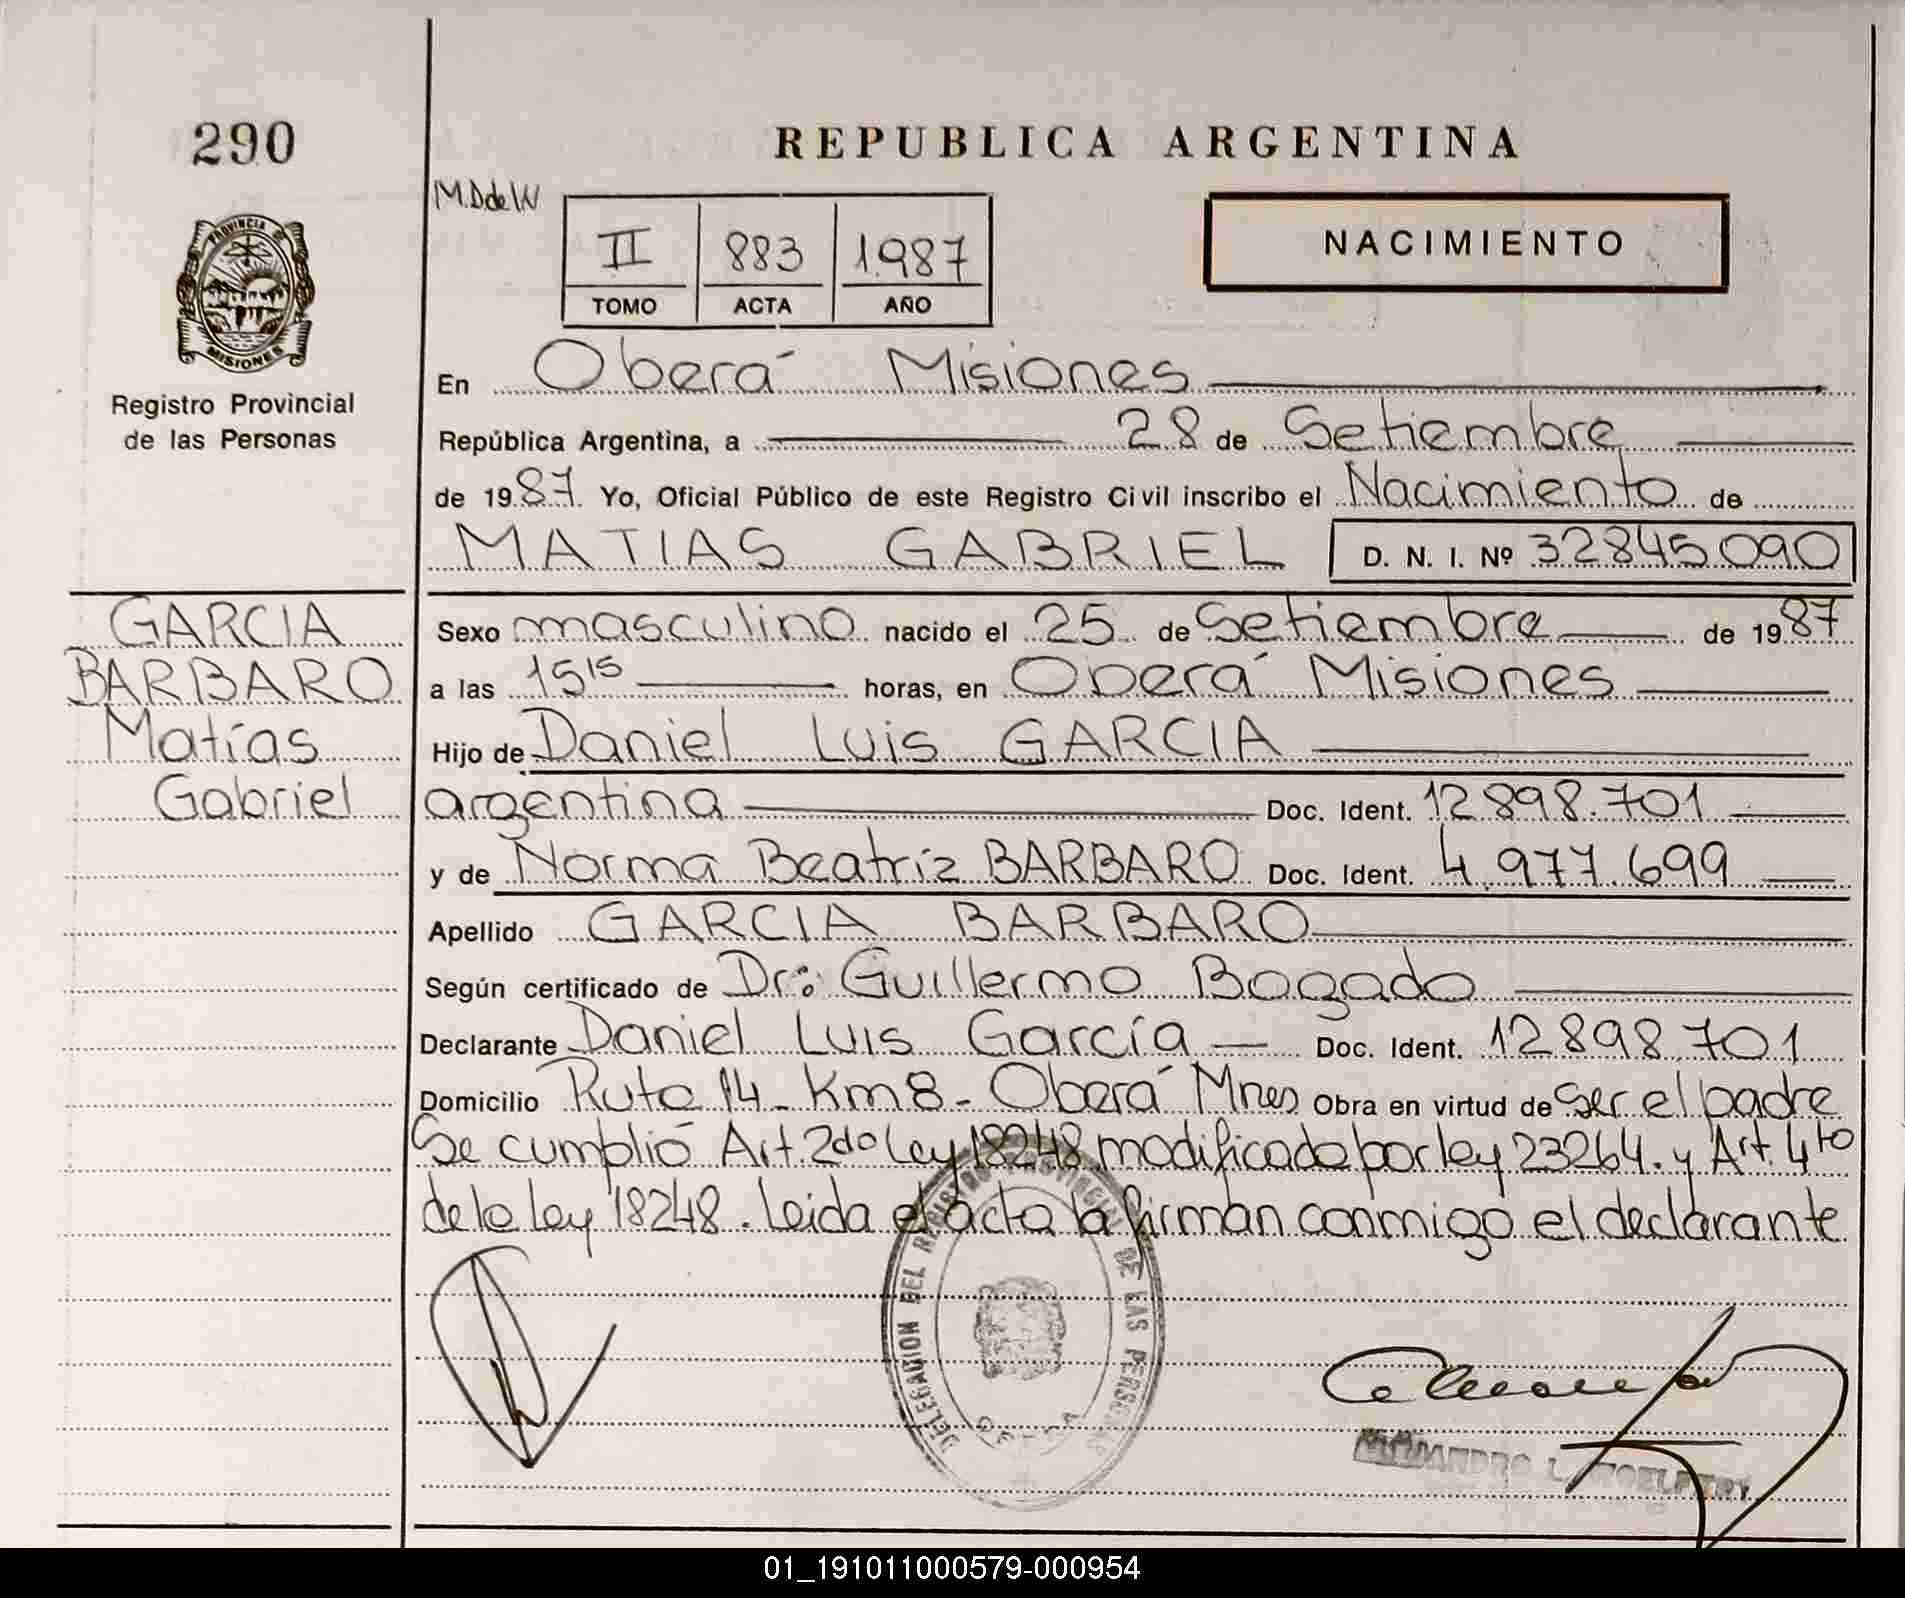 290
REPUBLICA ARGENTINA
M.D de W
PROVINCIA DE
MISIONES
Registro Provincial
de las Personas
II 883 1987
TOMO ACTA AÑO
NACIMIENTO
En Oberá Misiones
República Argentina, a 28 de Setiembre
de 1987. Yo, Oficial Público de este Registro Civil inscribo el Nacimiento de
MATIAS GABRIEL D. N. I. Nº 32845.090
GARCIA
BARBARO
Matías
Gabriel
Sexo masculino nacido el 25 de Setiembre de 1987
a las 15 15 horas, en Oberá Misiones
Hijo de Daniel Luis GARCIA
argentina Doc. Ident. 12.898.701
y de Norma Beatríz BARBARO Doc. Ident. 4.977.699
Apellido GARCIA BARBARO
Según certificado de Dr: Guillermo Bogado
Declarante Daniel Luis García Doc. Ident. 12.898.701
Domicilio Ruta 14 - Km 8 - Oberá Mnes Obra en virtud de ser el padre
Se cumplió Art. 2do Ley 18248 modificado por ley 23264. y Art. 4to
de la ley 18248. Leida el acta la firman conmigo el declarante
DELEGACION DEL REGISTRO PROVINCIAL DE LAS PERSONAS
ALEJANDRO L.
01_191011000579-000954